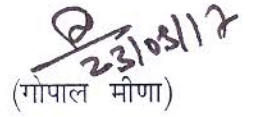 23/05/17
(गोपाल मीणा)